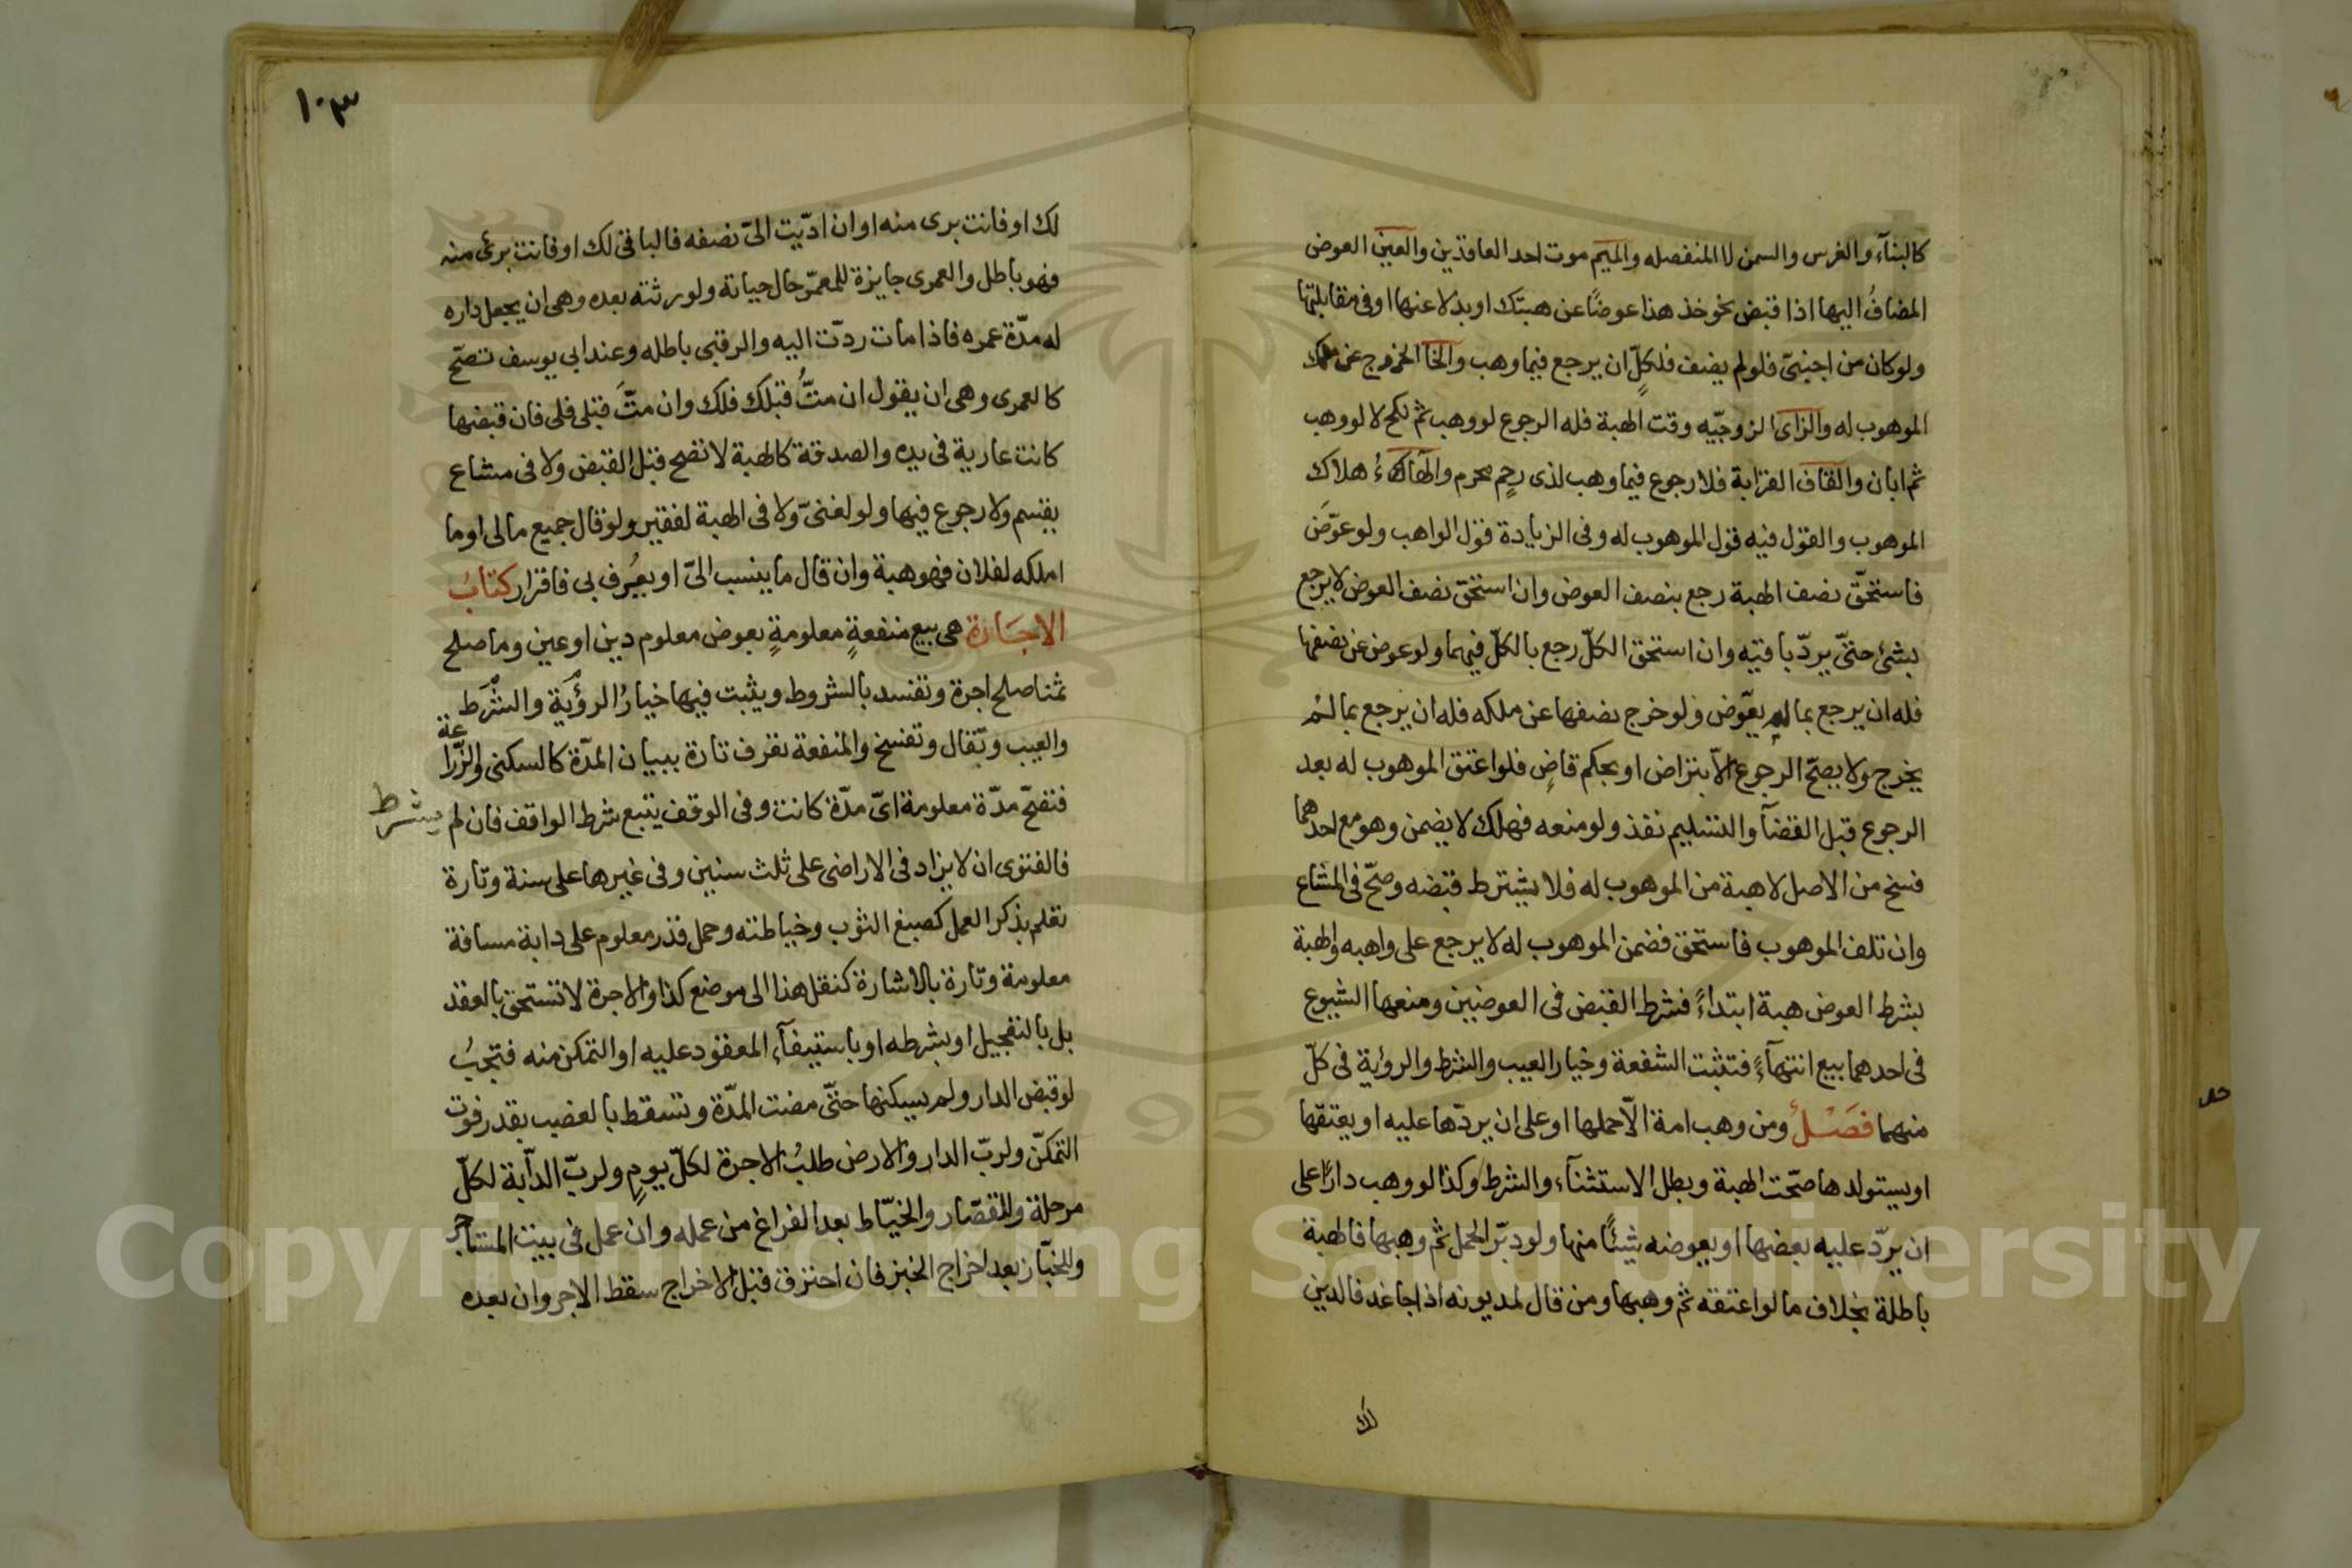 كالبنآء والغرس والسمن لا المنفصله والميم موت احد العاقدين والعين العوض
المضافُ اليها اذا قبض نحو خذ هذا عوضًا عن هبتك او بدلا عنها او فى مقابلتها
ولو كان من اجنبىّ فلو لم يضف فلكلٍّ ان يرجع فيما وهب والخا الخروج عن ملك
الموهوب له والزاى الزوجيّه وقت الهبة فله الرجوع لو وهب ثم نكح لا لو وهب
ثم ابان والقاف القرابة فلا رجوع فيما وهب لذى رحم محرم والهاء هلاك
الموهوب والقول فيه قول الموهوب له وفى الزيادة قول الواهب ولو عوّضَ
فاستحقّ نصف الهبة رجع بنصف العوض وان استحق نصف العوض لا يرجع
بشئ حتّى يردّ باقيه وان استحق الكلّ رجع بالكلّ فيهما ولو عوض عن نصفها
فله ان يرجع بما لم يعوّض ولو خرج نصفها عن ملكه فله ان يرجع بما لم
يخرج ولا يصحّ الرجوع الاّ بتراض او بحكم قاضٍ فلو اعتق الموهوب له بعد
الرجوع قبل القضآ والتسليم نفذ ولو منعه فهلك لا يضمن وهو مع احدهما
فسخ من الاصل لا هبة من الموهوب له فلا يشترط قبضه وصحّ فى المشاع
وان تلف الموهوب فاستحق فضمن الموهوب له لا يرجع على واهبه والهبة
بشرط العوض هبة ابتداءً فشرط القبض فى العوضين ومنعها الشيوع
فى احدهما بيع انتهآءً فتثبت الشفعة وخيار العيب والشرط والرؤية فى كلّ
منهما فصلٌ ومن وهب امة الّا حملها او على ان يردّها عليه او يعتقها
او يستولدها صحّت الهبة وبطل الاستثنآء والشرط وكذا لو وهب دارًا على
ان يردّ عليه بعضها او يعوضه شيئًا منها ولو دبّر الحمل ثم وهبها فالهبة
باطلة بخلاف ما لو اعتقه ثم وهبها ومن قال لمديونه اذا جا غد فالدين
لك
١٠٣
لك او فانت برى منه او ان ادّيت الىّ نصفه فالباقى لك او فانت برئ منه
فهو باطل والعمرى جايزة للمعمّر حال حياته ولورثته بعده وهى ان يجعل داره
له مدّة عمره فاذا مات ردّت اليه والرقبى باطله وعند ابى يوسف تصحّ
كالعمرى وهى ان يقول ان متُّ قبلك فلك وان متَّ قبلى فلى فان قبضها
كانت عارية فى يده والصدقة كالهبة لا تصح قبل القبض ولا فى مشاع
يقسم ولا رجوع فيها ولو لغنىّ ولا فى الهبة لفقير ولو قال جميع مالى او ما
املكه لفلان فهو هبة وان قال ما ينسب الىّ او يعُرف بى فاقرار كتابُ
الاجَارة هى بيع منفعةٍ معلومةٍ بعوض معلوم دين او عين وما صلح
ثمنا صلح اجرة وتفسد بالشروط ويثبت فيها خيارُ الرؤية والشرط
والعيب وتقال وتفسخ والمنفعة تعرف تارة ببيان المدّة كالسكنى والزّراعة
فتصحّ مدّة معلومة اىّ مدّة كانت وفى الوقف يتبع شرط الواقف فان لم يشرط
فالفتوى ان لا يزاد فى الاراضى على ثلث سنين وفى غيرها على سنة وتارة
تعلم بذكر العمل كصبغ الثوب وخياطته وحمل قدر معلوم على دابة مسافة
معلومة وتارة بالاشارة كنقل هذا الى موضع كذا والاجرة لا تستحق بالعقد
بل بالتعجيل او بشرطه او باستيفآء المعقود عليه او التمكن منه فتجبُ
لو قبض الدار ولم يسكنها حتّى مضت المدّة وتسقط بالغصب بقدر فوت
التمكّن ولربّ الدار والارض طلبُ الاجرة لكلّ يومٍ ولربّ الدآبة لكلّ
مرحلة وللقصّار والخيّاط بعد الفراغ من عمله وان عمل فى بيت المستاجر
وللخبّاز بعد اخراج الخبز فان احترق قبل الاخراج سقط الاجر وان بعده
Copyright © King Saud University
1957